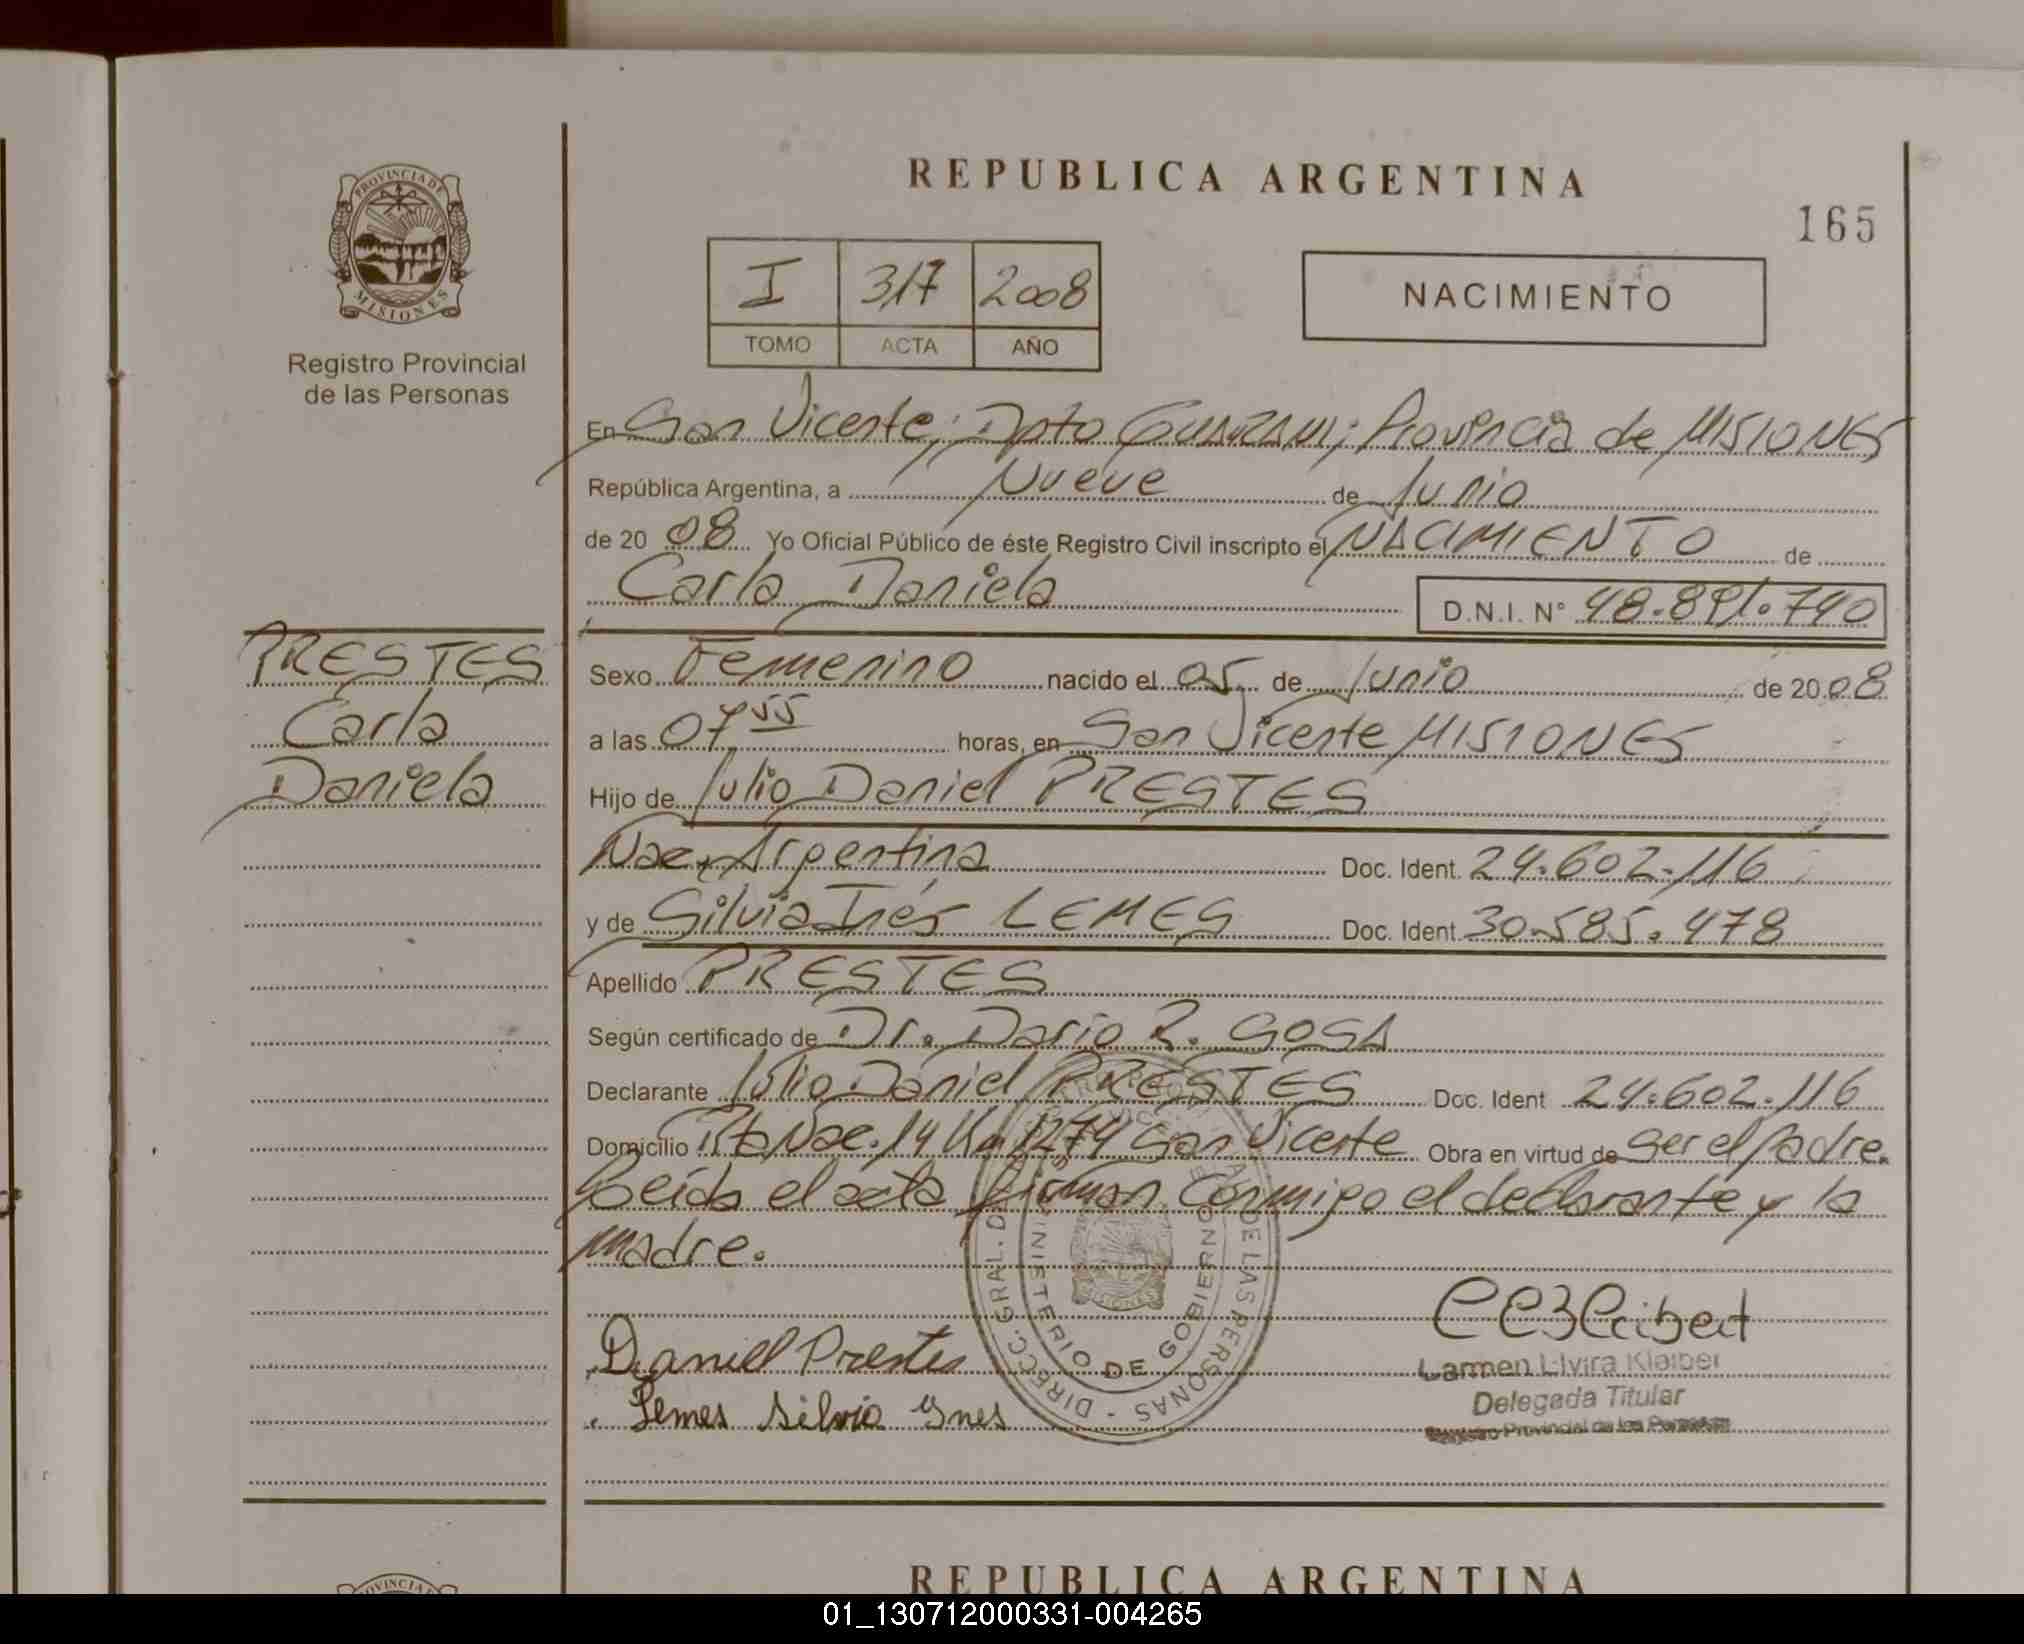 REPUBLICA ARGENTINA
165
PROVINCIA DE
MISIONES
Registro Provincial
de las Personas
I 317 2008
TOMO ACTA AÑO
NACIMIENTO
En San Vicente; Dpto GUARANI; Provincia de MISIONES
República Argentina, a Nueve de Junio
de 20 08 Yo Oficial Público de éste Registro Civil inscripto el NACIMIENTO de
Carla Daniela D.N.I. N° 48.891.740
PRESTES
Carla
Daniela
Sexo Femenino nacido el 05 de Junio de 20 08
a las 07 55 horas, en San Vicente MISIONES
Hijo de Julio Daniel PRESTES
Nac. Argentina Doc. Ident. 24.602.116
y de Silvia Inés LEMES Doc. Ident 30.585.478
Apellido PRESTES
Según certificado de Dr. Dario R. SOSA
Declarante Julio Daniel PRESTES Doc. Ident 24.602.116
Domicilio Rta Nac. 14 Km 1274 San Vicente Obra en virtud de ser el padre.
Leída el acta firman conmigo el declarante y la
madre.
DIRECC. GRAL. DE LAS PERSONAS
MINISTERIO DE GOBIERNO
MISIONES
Daniel Prestes
Lemes Silvia Ynes
Carmen Elvira Kleiber
Delegada Titular
Registro Provincial de las Personas
PROVINCIA
REPUBLICA ARGENTINA
01_130712000331-004265